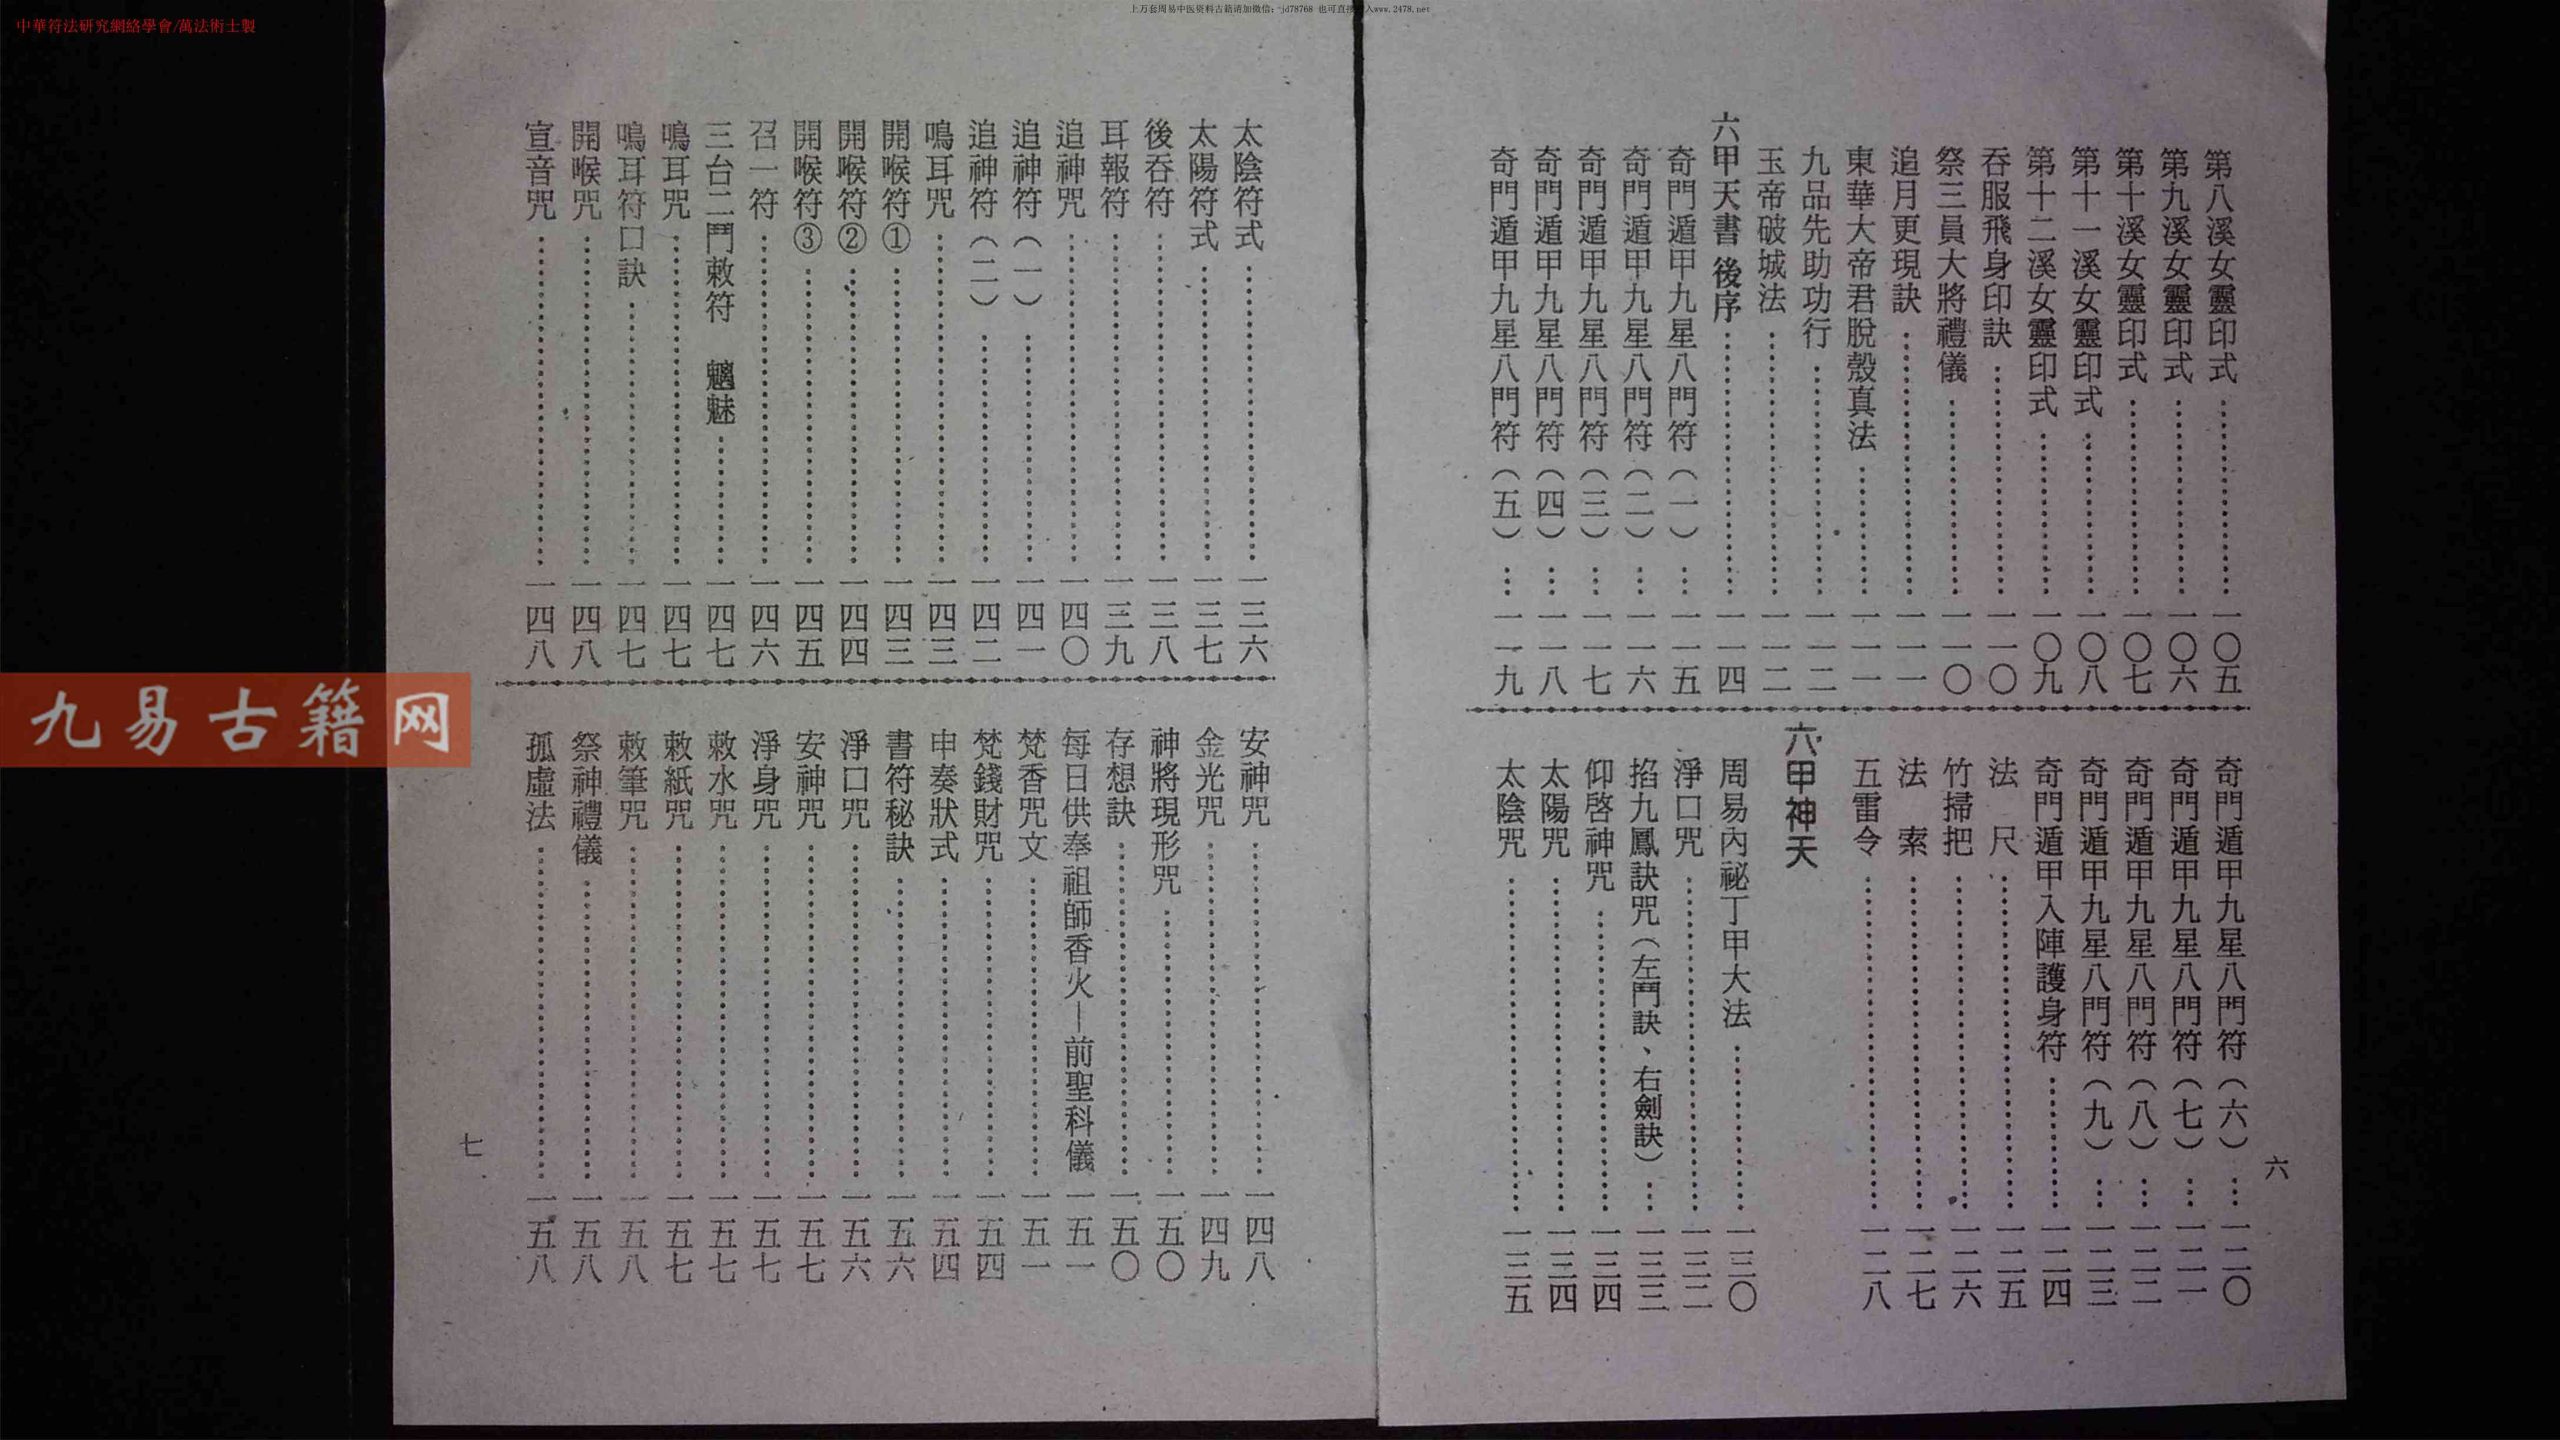 中華符法研究網絡學會/萬法術士製
上万套周易中医资料古籍请加微信：jd78768 也可直接入www.2478.net
九易古籍网
第八溪女靈印式……一〇五
第九溪女靈印式……一〇六
第十溪女靈印式……一〇七
第十一溪女靈印式……一〇八
第十二溪女靈印式……一〇九
吞服飛身印訣……一一〇
祭三員大將禮儀……一一〇
追月更現訣……一一一
東華大帝君脫殼真法……一一一
九品先助功行……一一二
玉帝破城法……一一二
六甲天書 後序……一一四
奇門遁甲九星八門符（一）…一一五
奇門遁甲九星八門符（二）…一一六
奇門遁甲九星八門符（三）…一一七
奇門遁甲九星八門符（四）…一一八
奇門遁甲九星八門符（五）…一一九
奇門遁甲九星八門符（六）…一二〇
奇門遁甲九星八門符（七）…一二一
奇門遁甲九星八門符（八）…一二二
奇門遁甲九星八門符（九）…一二三
奇門遁甲入陣護身符……一二四
法 尺……一二五
竹掃把……一二六
法 索……一二七
五雷令……一二八
六甲神天
周易內祕丁甲大法……一三〇
淨口咒……一三二
掐九鳳訣咒（左鬥訣、右劍訣）…一三三
仰啓神咒……一三四
太陽咒……一三四
太陰咒……一三五
六
太陰符式……一三六
太陽符式……一三七
後吞符……一三八
耳報符……一三九
追神咒……一四〇
追神符（一）……一四一
追神符（二）……一四二
鳴耳咒……一四三
開喉符①……一四三
開喉符②……一四四
開喉符③……一四五
召一符……一四六
三台二鬥敕符 魑魅……一四七
鳴耳咒……一四七
鳴耳符口訣……一四七
開喉咒……一四八
宣音咒……一四八
安神咒……一四八
金光咒……一四九
神將現形咒……一五〇
存想訣……一五〇
每日供奉祖師香火—前聖科儀 一五一
梵香咒文……一五一
梵錢財咒……一五四
申奏狀式……一五四
書符秘訣……一五六
淨口咒……一五六
安神咒……一五七
淨身咒……一五七
敕水咒……一五七
敕紙咒……一五七
敕筆咒……一五八
祭神禮儀……一五八
孤虛法……一五八
七